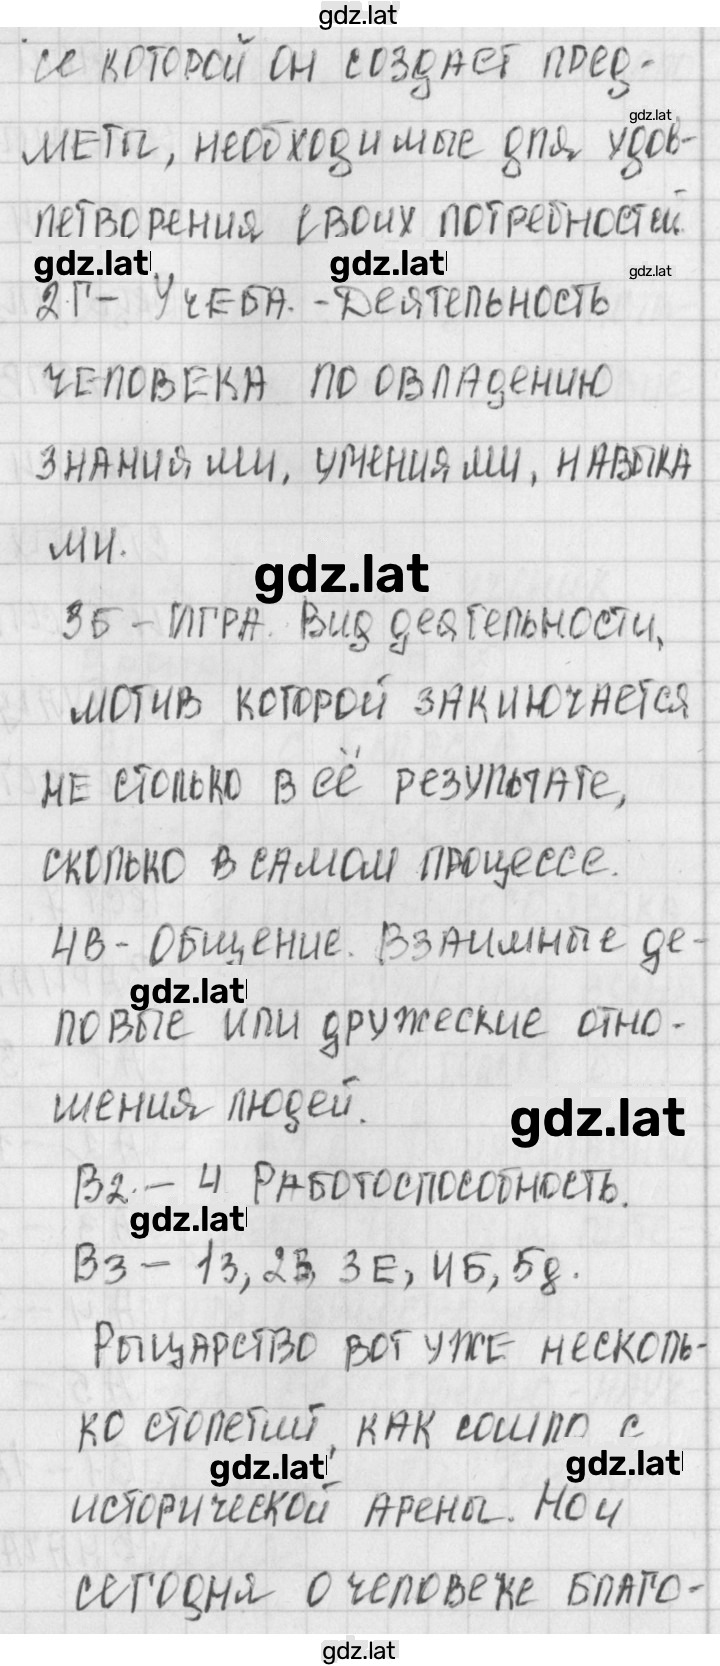 gdz.lat
се которой он создает пред-
gdz.lat
меты, необходимые для удов-
летворения своих потребностей
gdz.lat gdz.lat gdz.lat
2.Г- Учеба. - Деятельность
человека по овладению
знаниями, умениями, навыка
ми.
gdz.lat
3Б - Игра. Вид деятельности,
мотив которой заключается
не столько в её результате,
сколько в самом процессе.
4В- Общение. Взаимные де-
gdz.lat
ловые или дружеские отно-
шения людей.
gdz.lat
В2.- 4 Работоспособность.
gdz.lat
В3 - 13, 2В, 3Е, 4Б, 5д.
Рыцарство вот уже несколь-
ко столетий, как сошло с
gdz.lat gdz.lat
исторической арены. Но и
сегодня о человеке благо-
gdz.lat